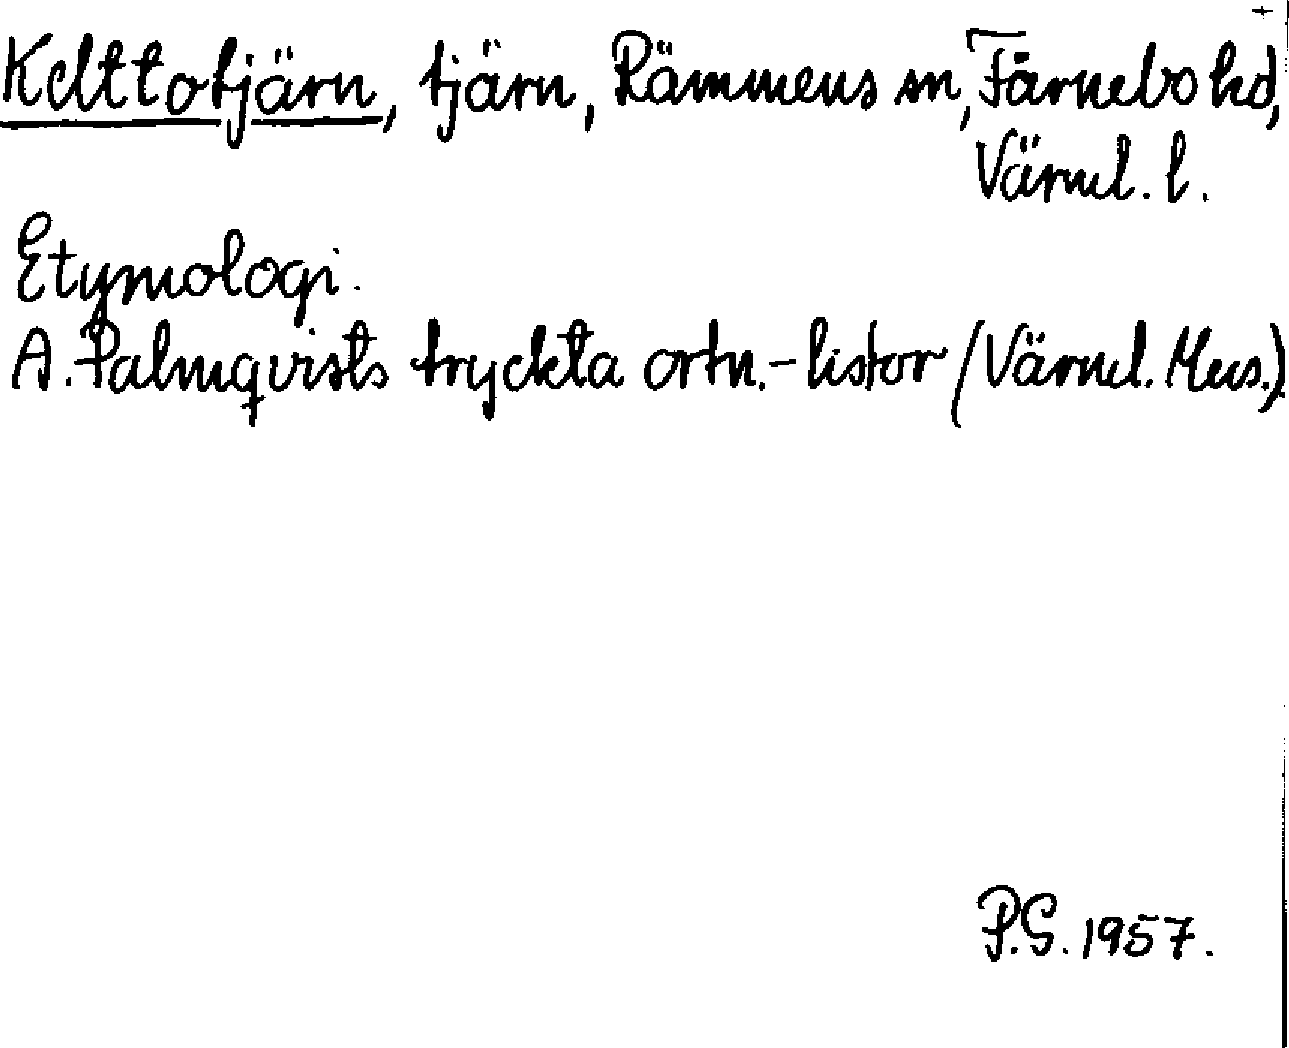 Kelttotjärn, tjärn, Rämmens sn, Färnebo hd,
Värml. l.
Etymologi.
A. Palmqvists tryckta ortn.-listor (Värml. Mus.)
P.G. 1957.